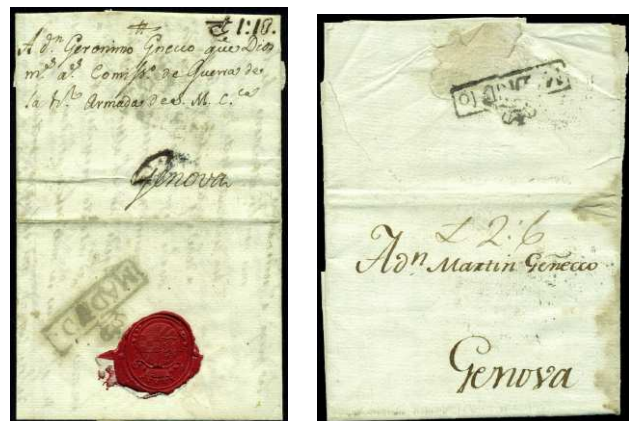 1:18.
A dn Geronimo Gnecco que Dios
ms as Comisso de Guerra de
la Rl Armada de S. M. Cca
Genova
MADRID
MADRID
£ 2:6
A dn Martin Geñecco
Genova